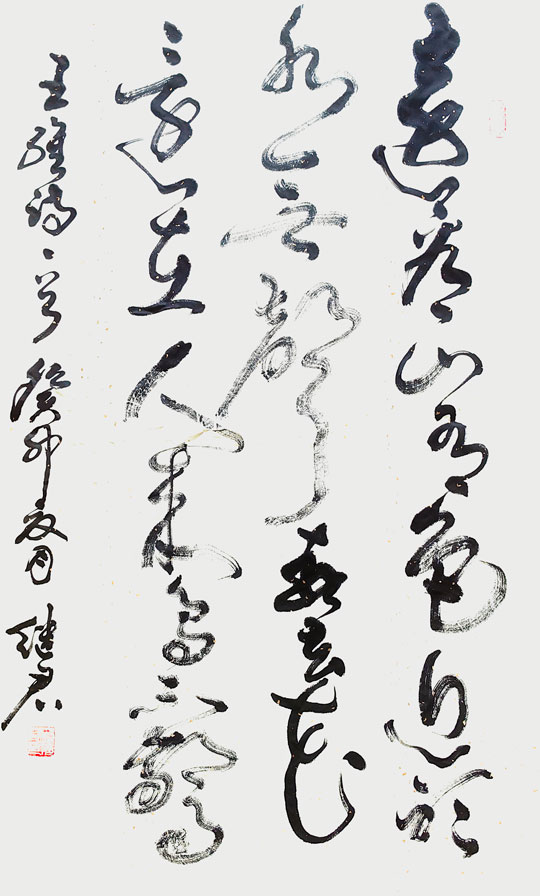 遠看山有色近聽
水无聲春去花
還在人来鳥不驚
王維詩一首 癸卯夏月 继君